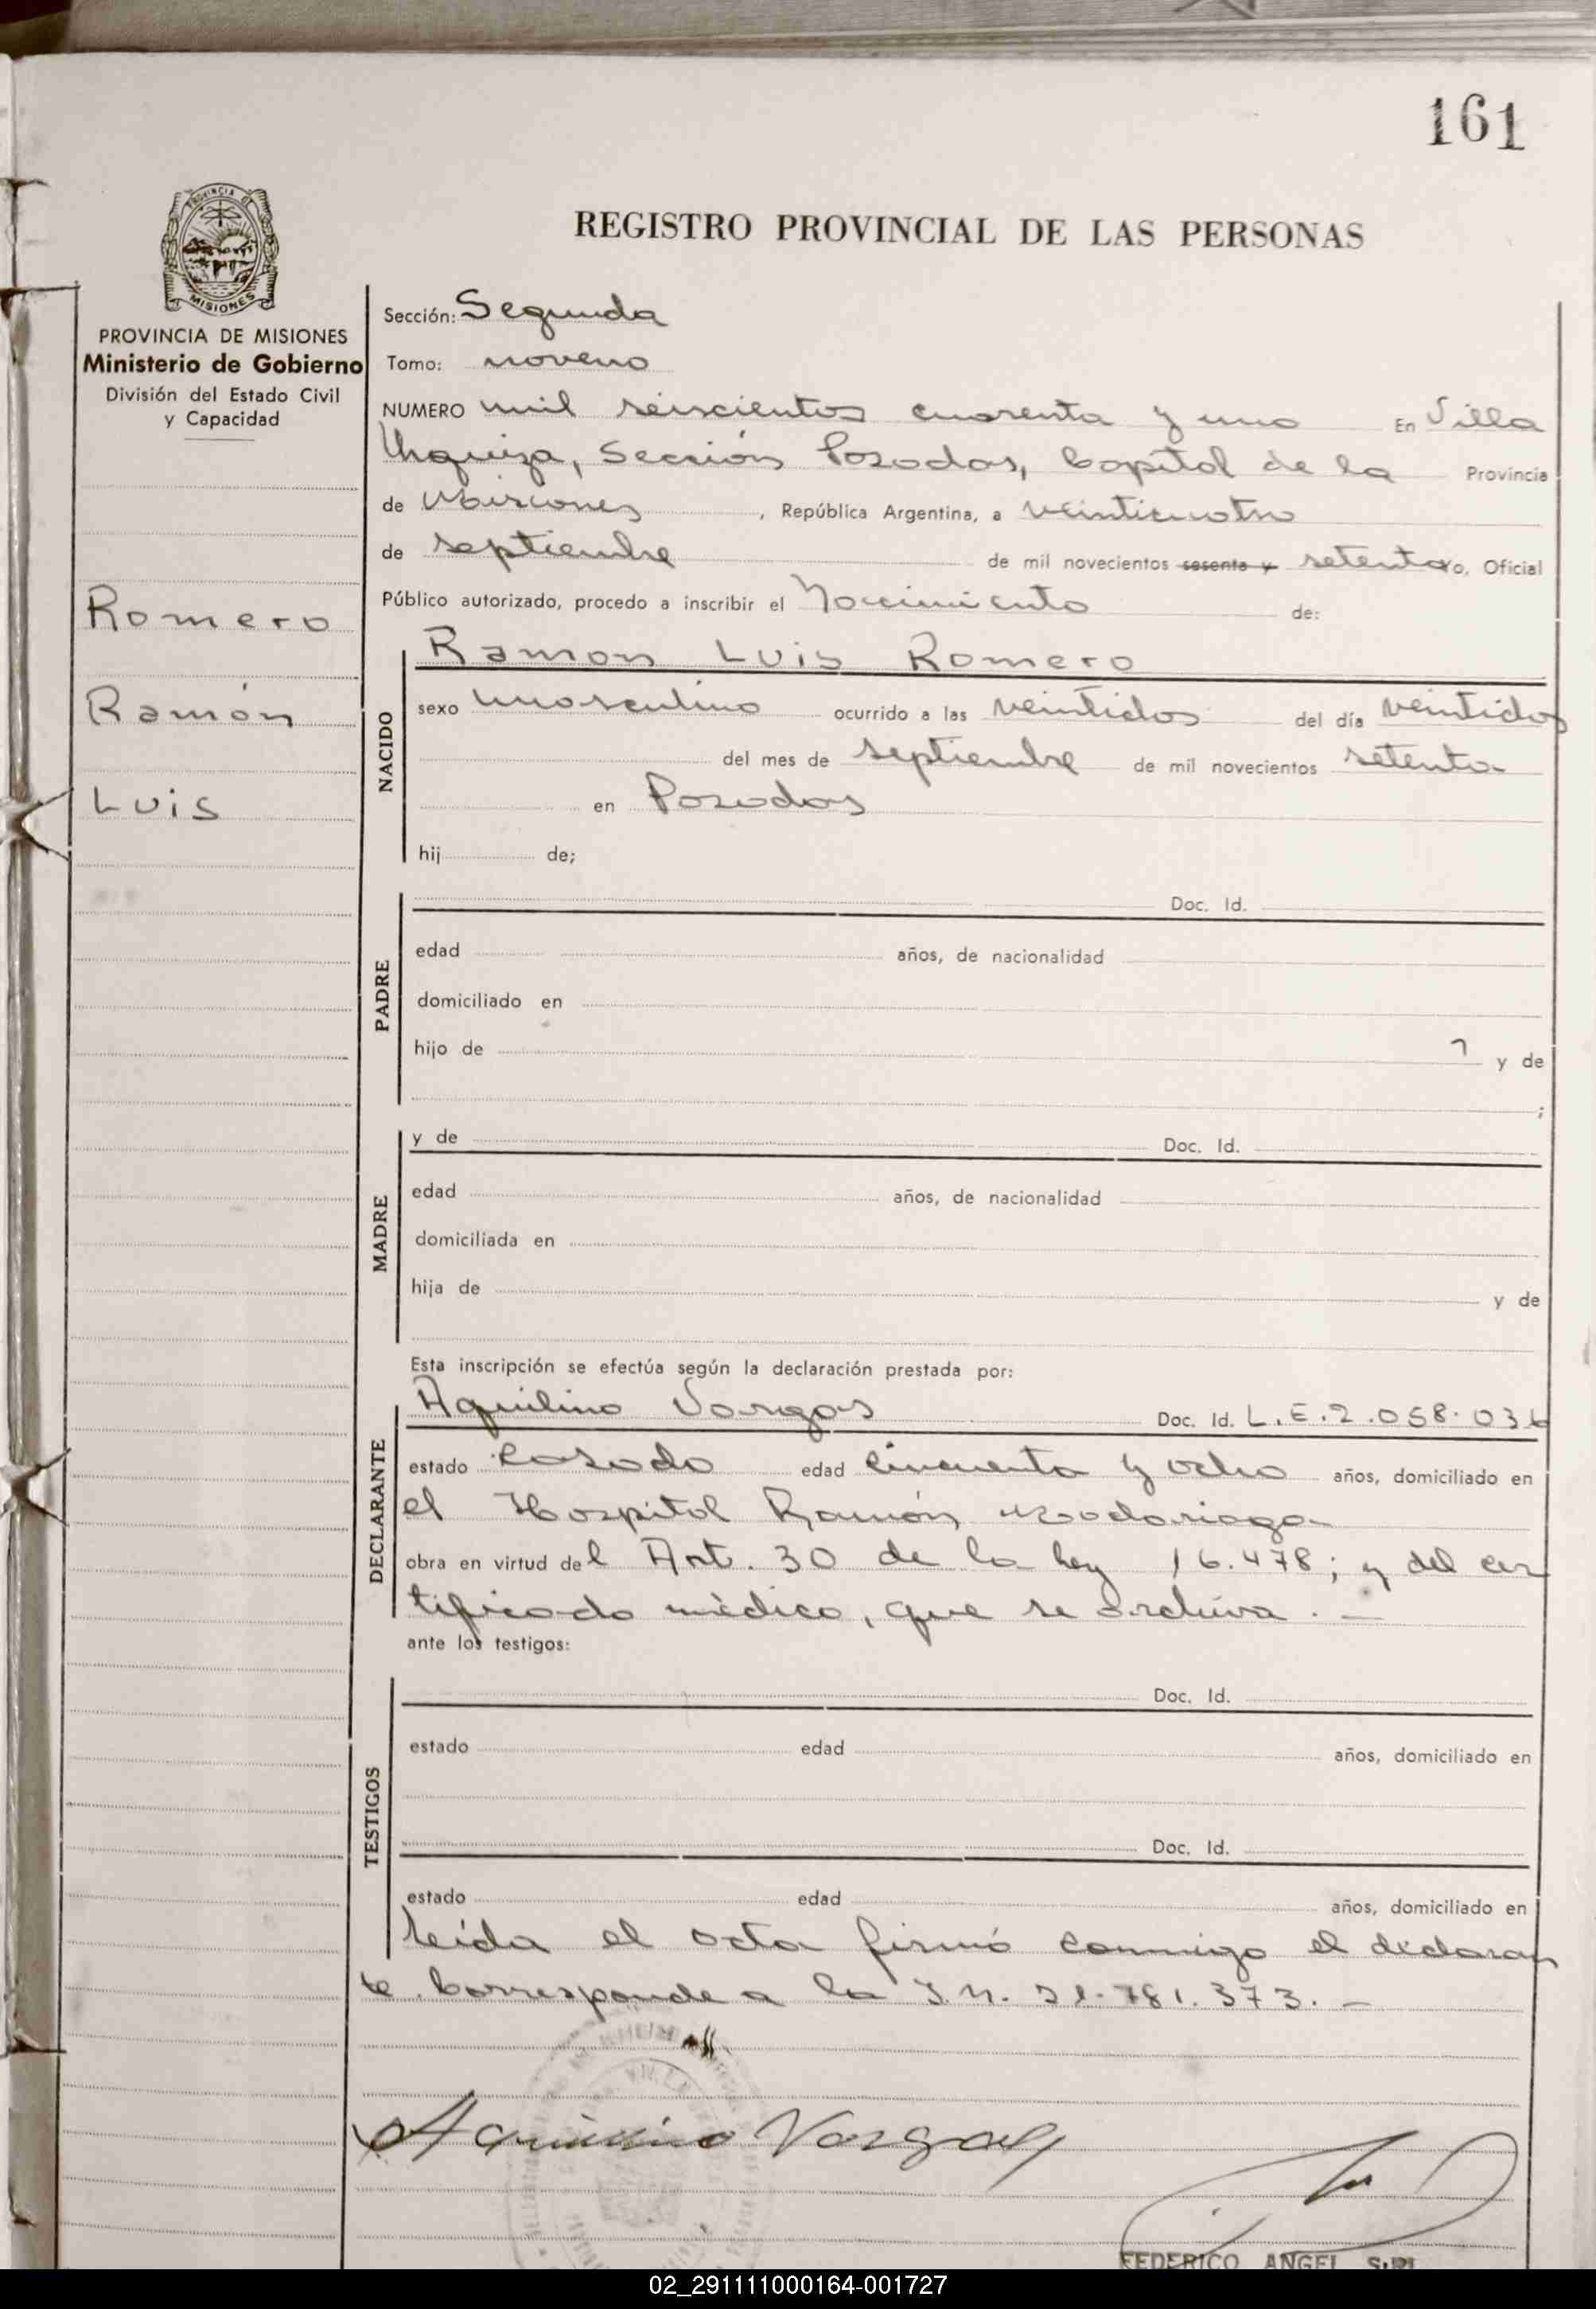 161
PROVINCIA DE
MISIONES
REGISTRO PROVINCIAL DE LAS PERSONAS
PROVINCIA DE MISIONES
Ministerio de Gobierno
División del Estado Civil
y Capacidad
Romero
Ramón
Luis
Sección: Segunda
Tomo: noveno
NUMERO mil seiscientos cuarenta y uno En Villa
Urquiza, Sección Posadas, Capital de la Provincia
de Misiones, República Argentina, a veinticuatro
de septiembre de mil novecientos sesenta y setenta yo, Oficial
Público autorizado, procedo a inscribir el Nacimiento de:
NACIDO
Ramon Luis Romero
sexo masculino ocurrido a las veintidos del día veintidos
del mes de septiembre de mil novecientos setenta
en Posadas
hij de;
PADRE
Doc. Id.
edad años, de nacionalidad
domiciliado en
hijo de y de
;
MADRE
y de Doc. Id.
edad años, de nacionalidad
domiciliada en
hija de y de
Esta inscripción se efectúa según la declaración prestada por:
DECLARANTE
Aquilino Vargas Doc. Id. L.E.2.058.036
estado casado edad cincuenta y ocho años, domiciliado en
el Hospital Ramón Madariaga
obra en virtud del Art. 30 de la ley 16.478; y del cer
tificado médico, que se archiva. —
ante los testigos:
TESTIGOS
Doc. Id.
estado edad años, domiciliado en
Doc. Id.
estado edad años, domiciliado en
leída el acta firmó conmigo el declaran
te. Corresponde a la 781.373. —
Aquilino Vargas
FEDERICO ANGEL
02_291111000164-001727